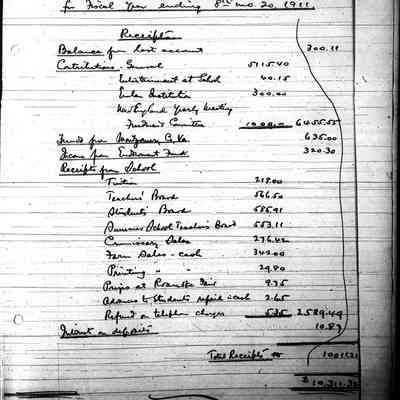 for Fiscal Year ending 8th mo. 20, 1911.
Receipts
Balance from last account 300.11
Contributions - General 5115.40
Entertainment at School 40.15
Institution 300.00
New England Yearly Meeting
Freedmen's Committee 1000.00 6455.55
Funds from Montgomery Co. Va. 635.00
Income from Endowment Fund 320.30
Receipts from School
Tuition 218.00
Teachers' Board 566.50
Students' Board 585.91
Summer School Teacher's Board 553.11
Commissary Sales 276.42
Farm Sales - cash 342.00
Printing " " 29.80
Prizes at Roanoke Fair 9.75
Advances to Students repaid - cash 2.65
Refund on telephone charges 5.35 2589.49
Interest on deposits 10.87
Total Receipts 10011.21
$ 10,311.32